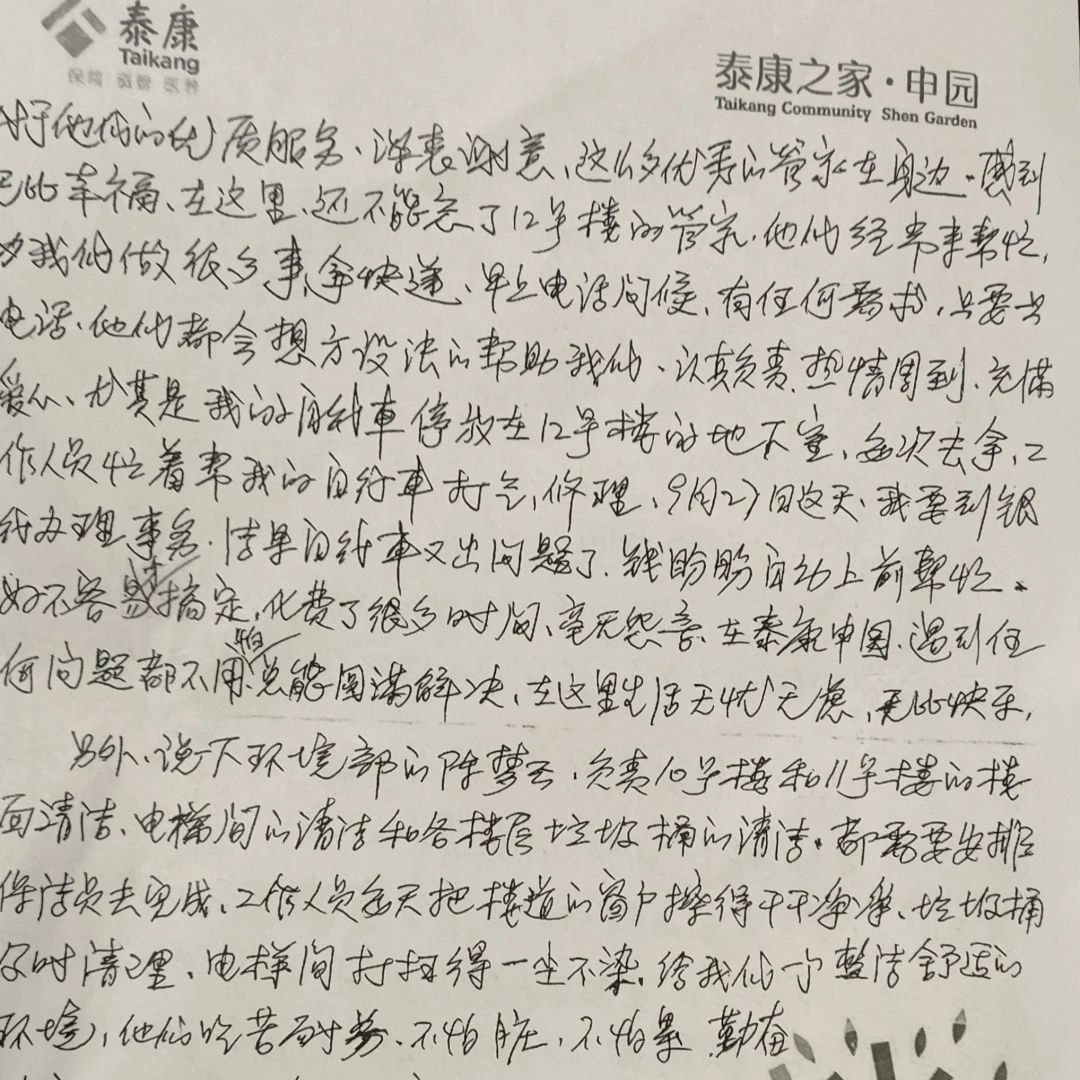 泰康
Taikang
保险 资管 医养
泰康之家·申园
Taikang Community Shen Garden
对于他们的优质服务、深表谢意、这么多优秀的管家在身边。感到
无比幸福、在这里、还不能忘了12号楼的管家、他们经常来帮忙,
为我们做很多事,拿快递、早上电话问候、有任何需求,只要去
电话、他们都会想方设法的帮助我们、认真负责、热情周到、充满
爱心、尤其是我的自行車停放在12号楼的地下室、每次去拿,工
作人员忙着帮我的自行車打气,修理、9月27日这天、我要到银
行办理事务、结果自行車又出问题了、钱盼盼自动上前帮忙。
好不容易才搞定,化费了很多时间、毫无怨言、在泰康申园、遇到任
何问题都不用怕、总能圆满解决、在这里生活无忧无虑,无比快乐,
另外、说一下环境部的陈梦云、负责10号楼和11号楼的楼
面清洁、电梯间的清洁和各楼层垃圾桶的清洁。都需要安排
保洁员去完成、工作人员每天把楼道的窗户擦得干干净净、垃圾桶
及时清理、电梯间打扫得一尘不染,给我们一个整洁舒适的
环境,他们吃苦耐劳、不怕脏,不怕累 勤奋